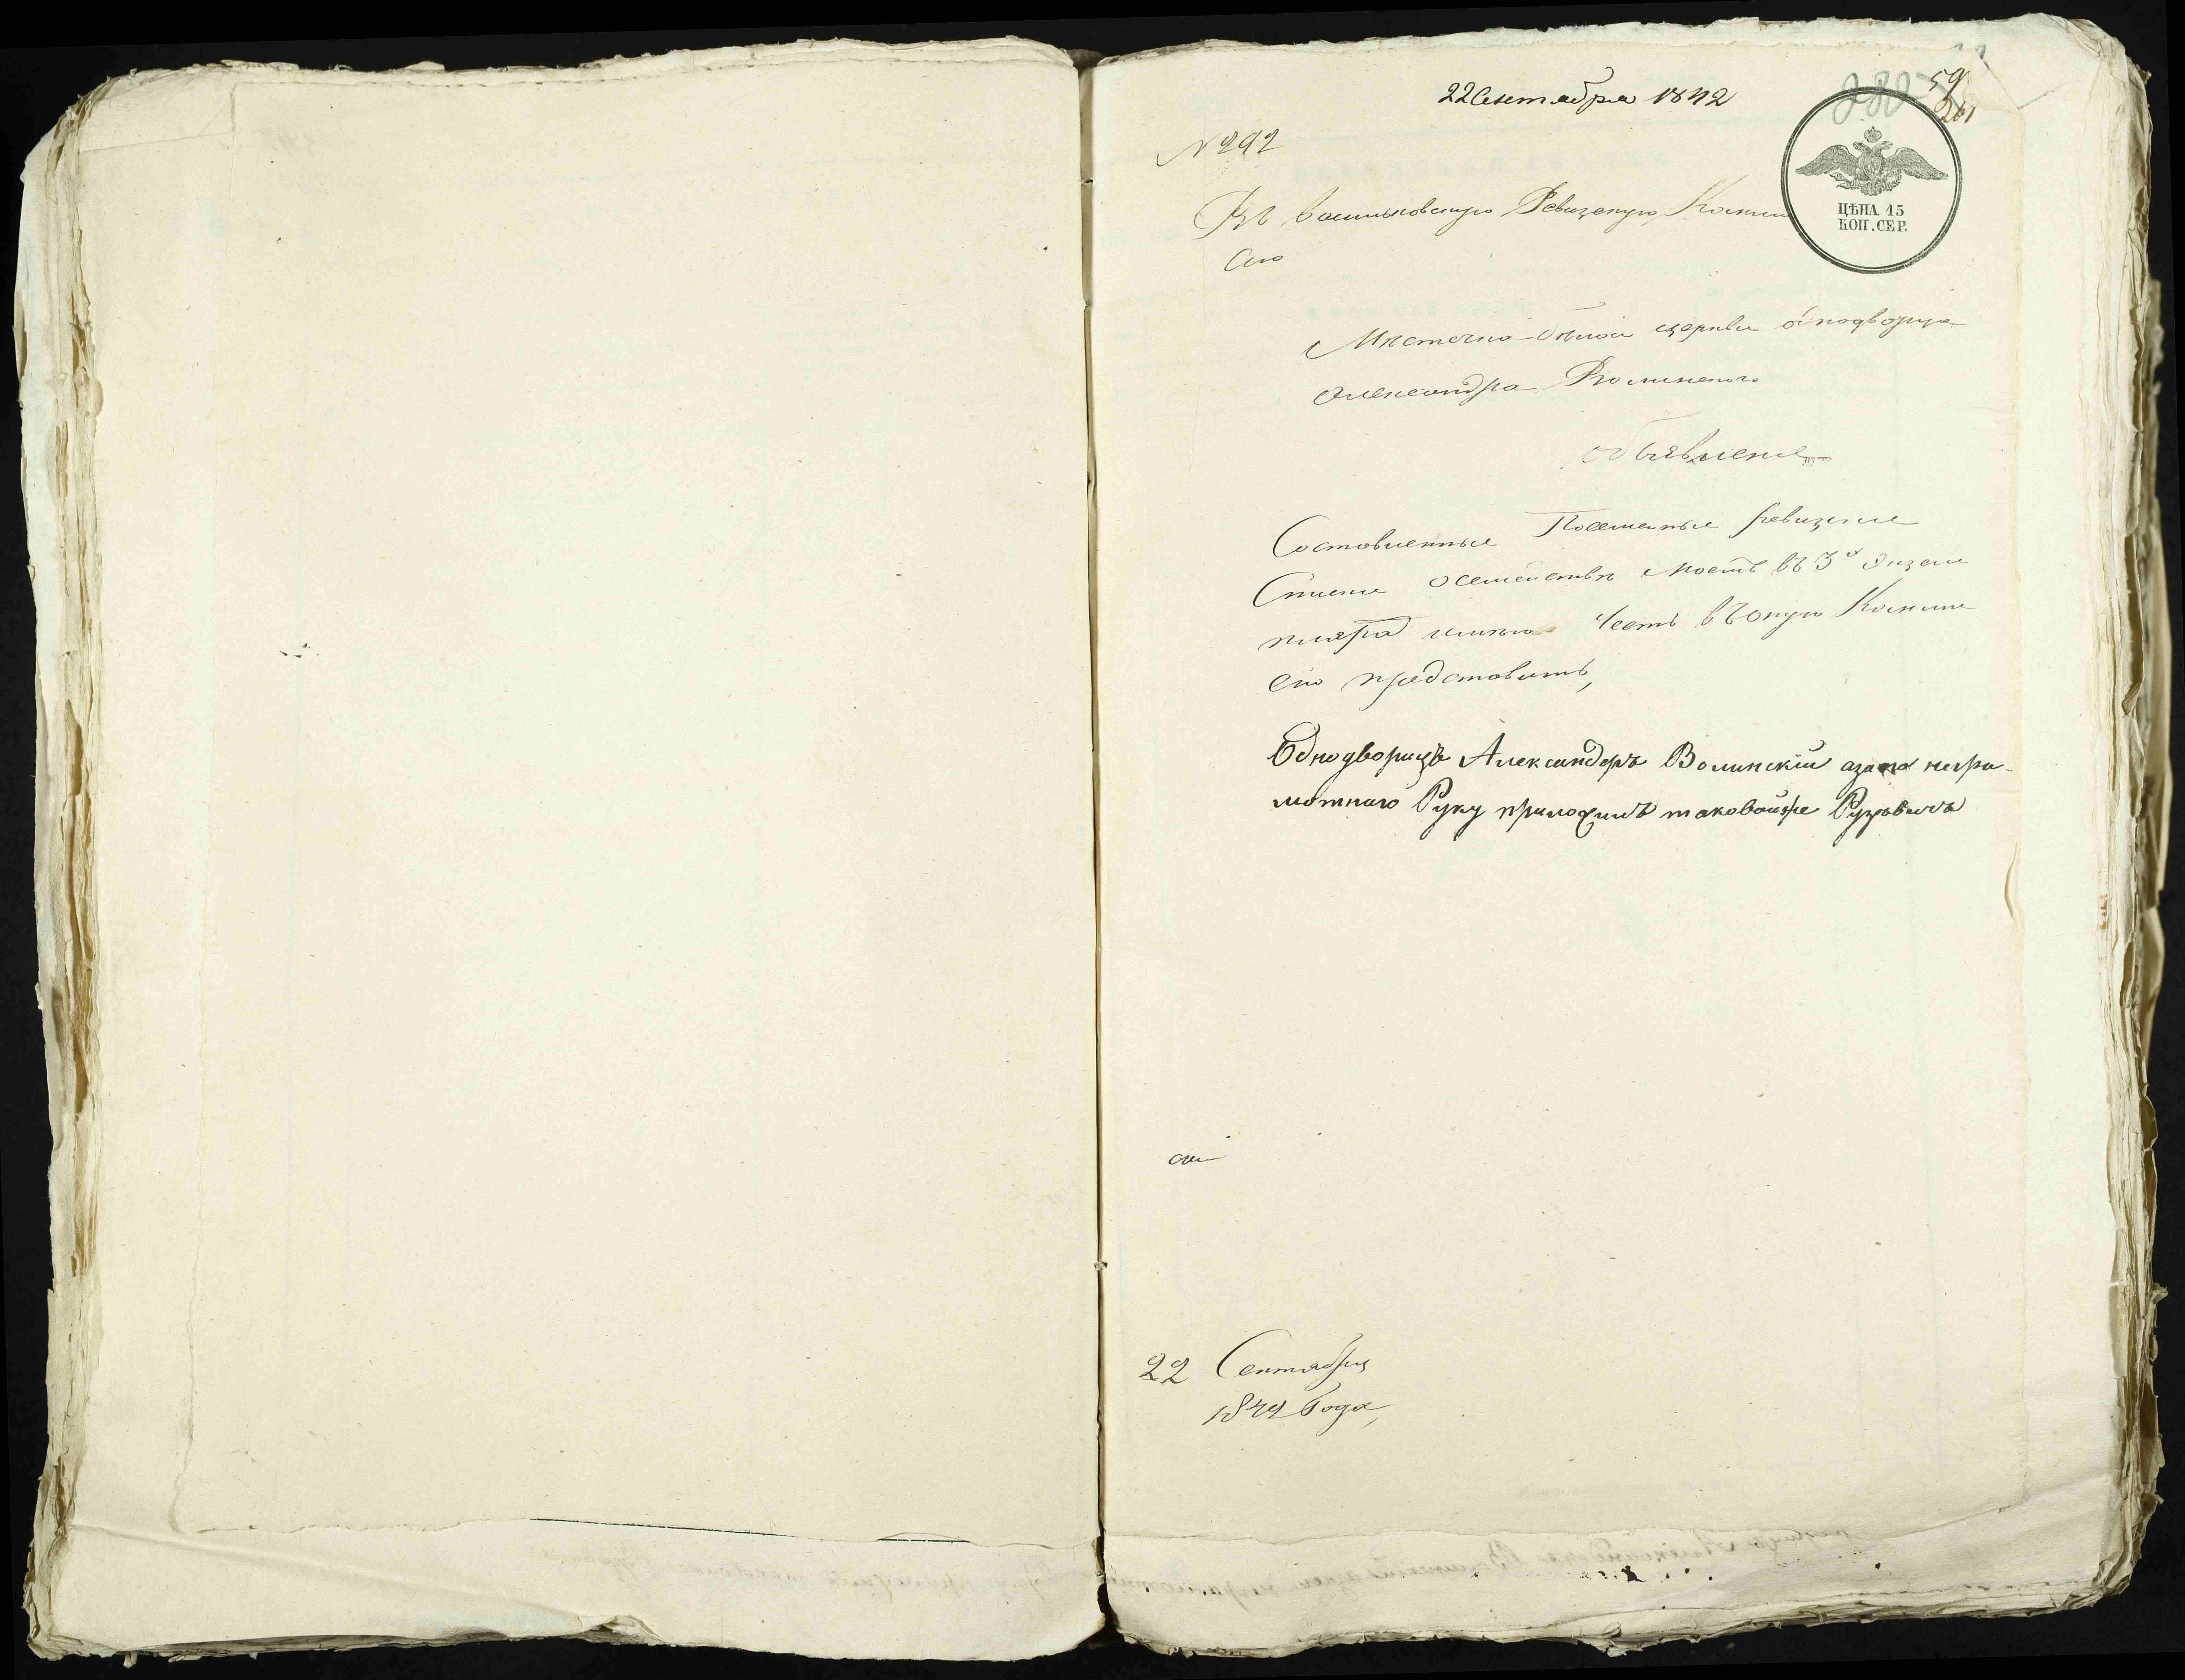 22 Сентабра 1842
280
59
261
N 292
ЦѢНА 15
КОП. СЕР.
Въ Васильковскую Ревизскую Комми
Сию
Мѣстечка Бѣлой церкви однодворца
Александра Волинского
объявление
Составленные Посемейные ревизские
Списки о семействѣ моемъ въ 3х Экзем
плярахъ имѣю Честь въ оную Комми
сію представить,
Однодворецъ Александеръ Волинскій азанег негра-
мотнаго Руку приложилъ таковойже
22 Сентября
1842 Года,